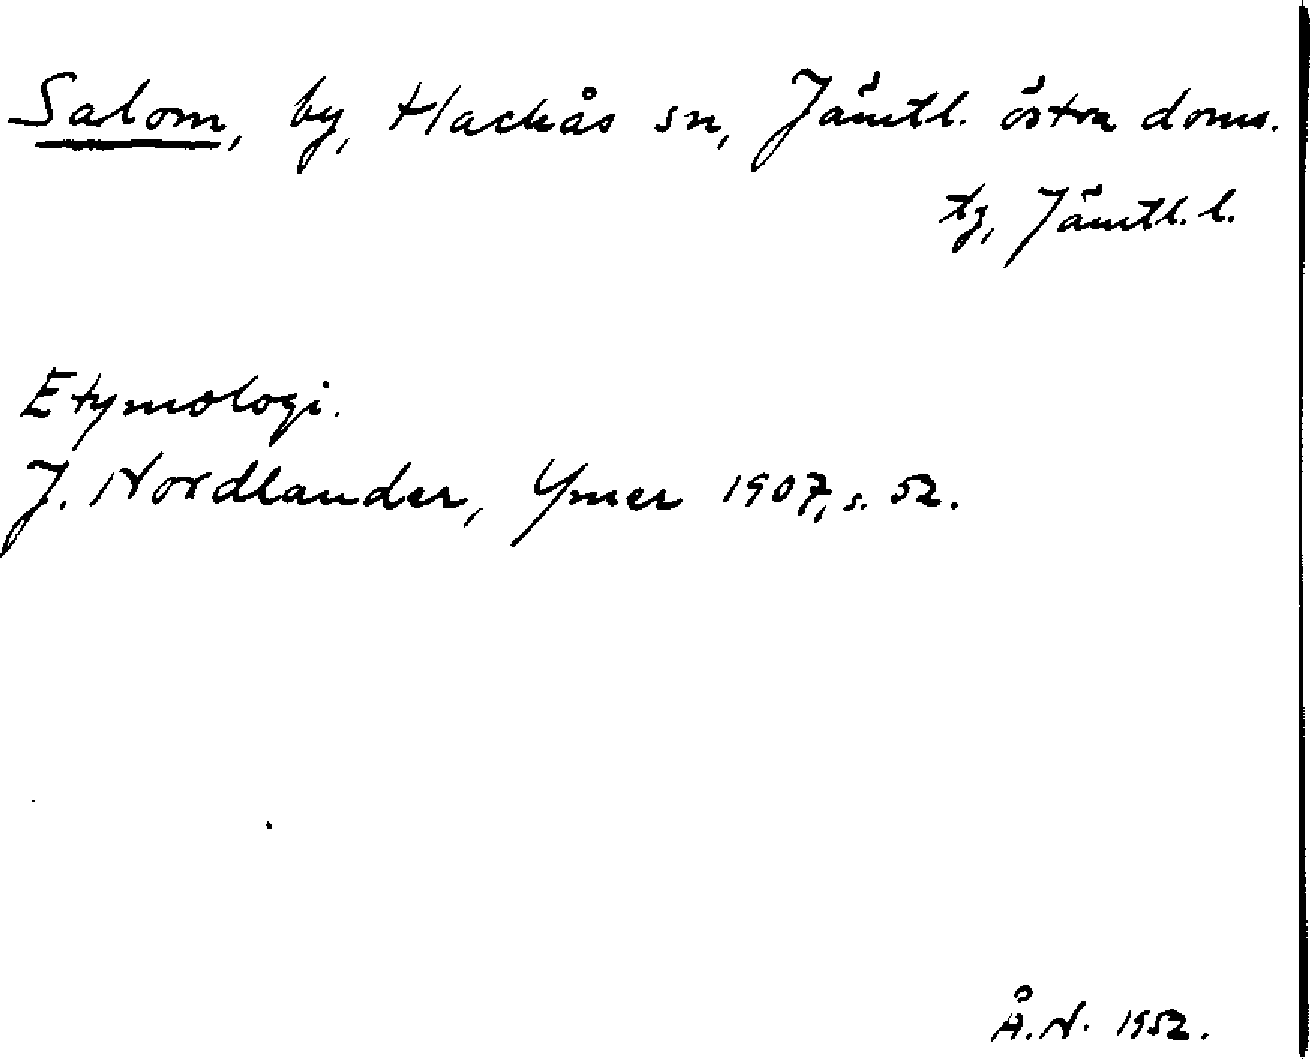 Salom, by, Hackås sn, Jämtl. östra doms.
tg, Jämtl. l.
Etymologi.
J. Nordlander, Ymer 1907, s. 52.
Å.N. 1952.